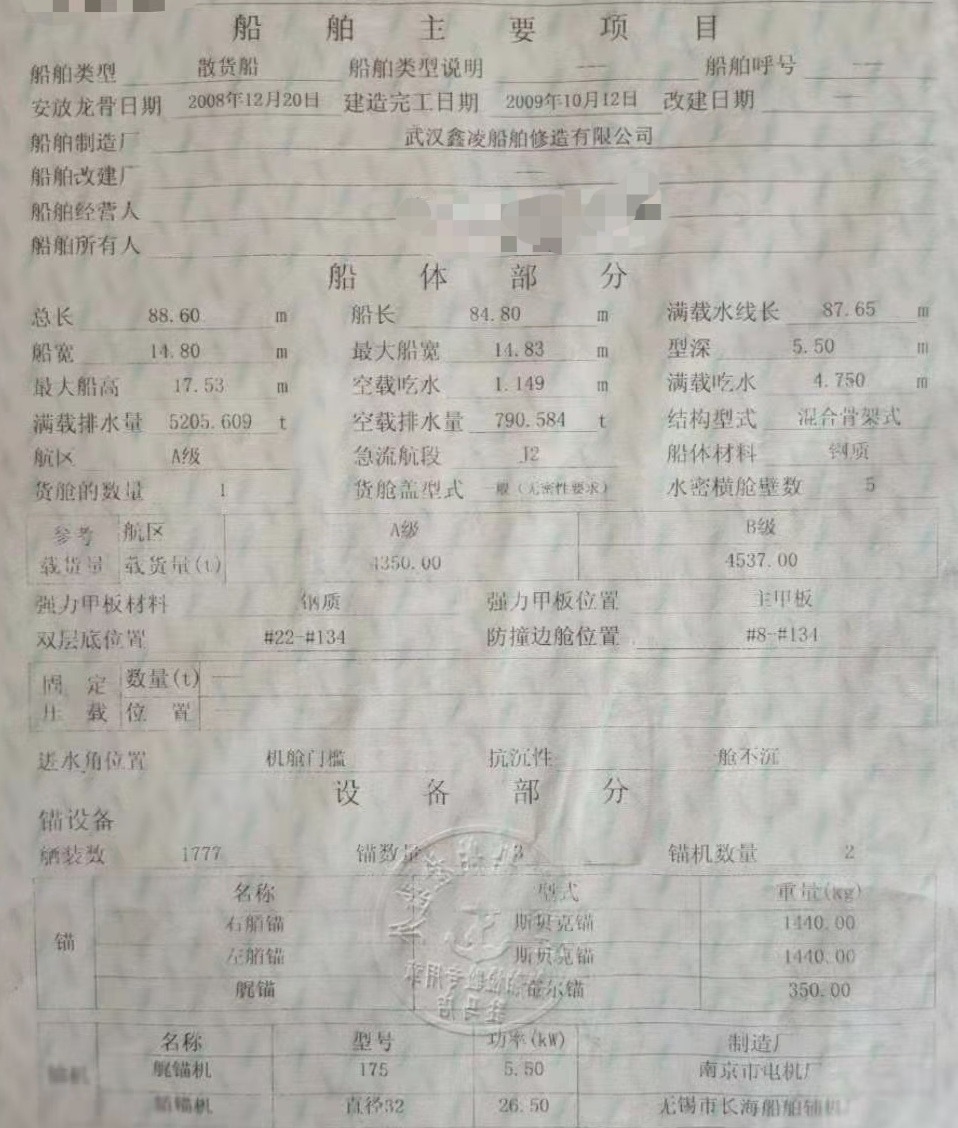 船舶主要项目
船舶类型 散货船 船舶类型说明 — 船舶呼号 —
安放龙骨日期 2008年12月20日 建造完工日期 2009年10月12日 改建日期 —
船舶制造厂 武汉鑫凌船舶修造有限公司
船舶改建厂 —
船舶经营人
船舶所有人
船体部分
总长 88.60 m 船长 84.80 m 满载水线长 87.65 m
船宽 14.80 m 最大船宽 14.83 m 型深 5.50 m
最大船高 17.53 m 空载吃水 1.149 m 满载吃水 4.750 m
满载排水量 5205.609 t 空载排水量 790.584 t 结构型式 混合骨架式
航区 A级 急流航段 J2 船体材料 钢质
货舱的数量 1 货舱盖型式 一般(无密性要求) 水密横舱壁数 5
参考 航区 A级 B级
载货量 载货量(t) 4350.00 4537.00
强力甲板材料 钢质 强力甲板位置 主甲板
双层底位置 #22-#134 防撞边舱位置 #8-#134
固定 数量(t) —
压载 位置 —
进水角位置 机舱门槛 抗沉性 舱不沉
设备部分
锚设备
舾装数 1777 锚数量 3 锚机数量 2
名称 型式 重量(kg)
锚 右艏锚 斯贝克锚 1440.00
左艏锚 斯贝克锚 1440.00
艉锚 霍尔锚 350.00
名称 型号 功率(kW) 制造厂
锚机 艉锚机 175 5.50 南京市电机厂
艏锚机 直径32 26.50 无锡市长海船舶辅机